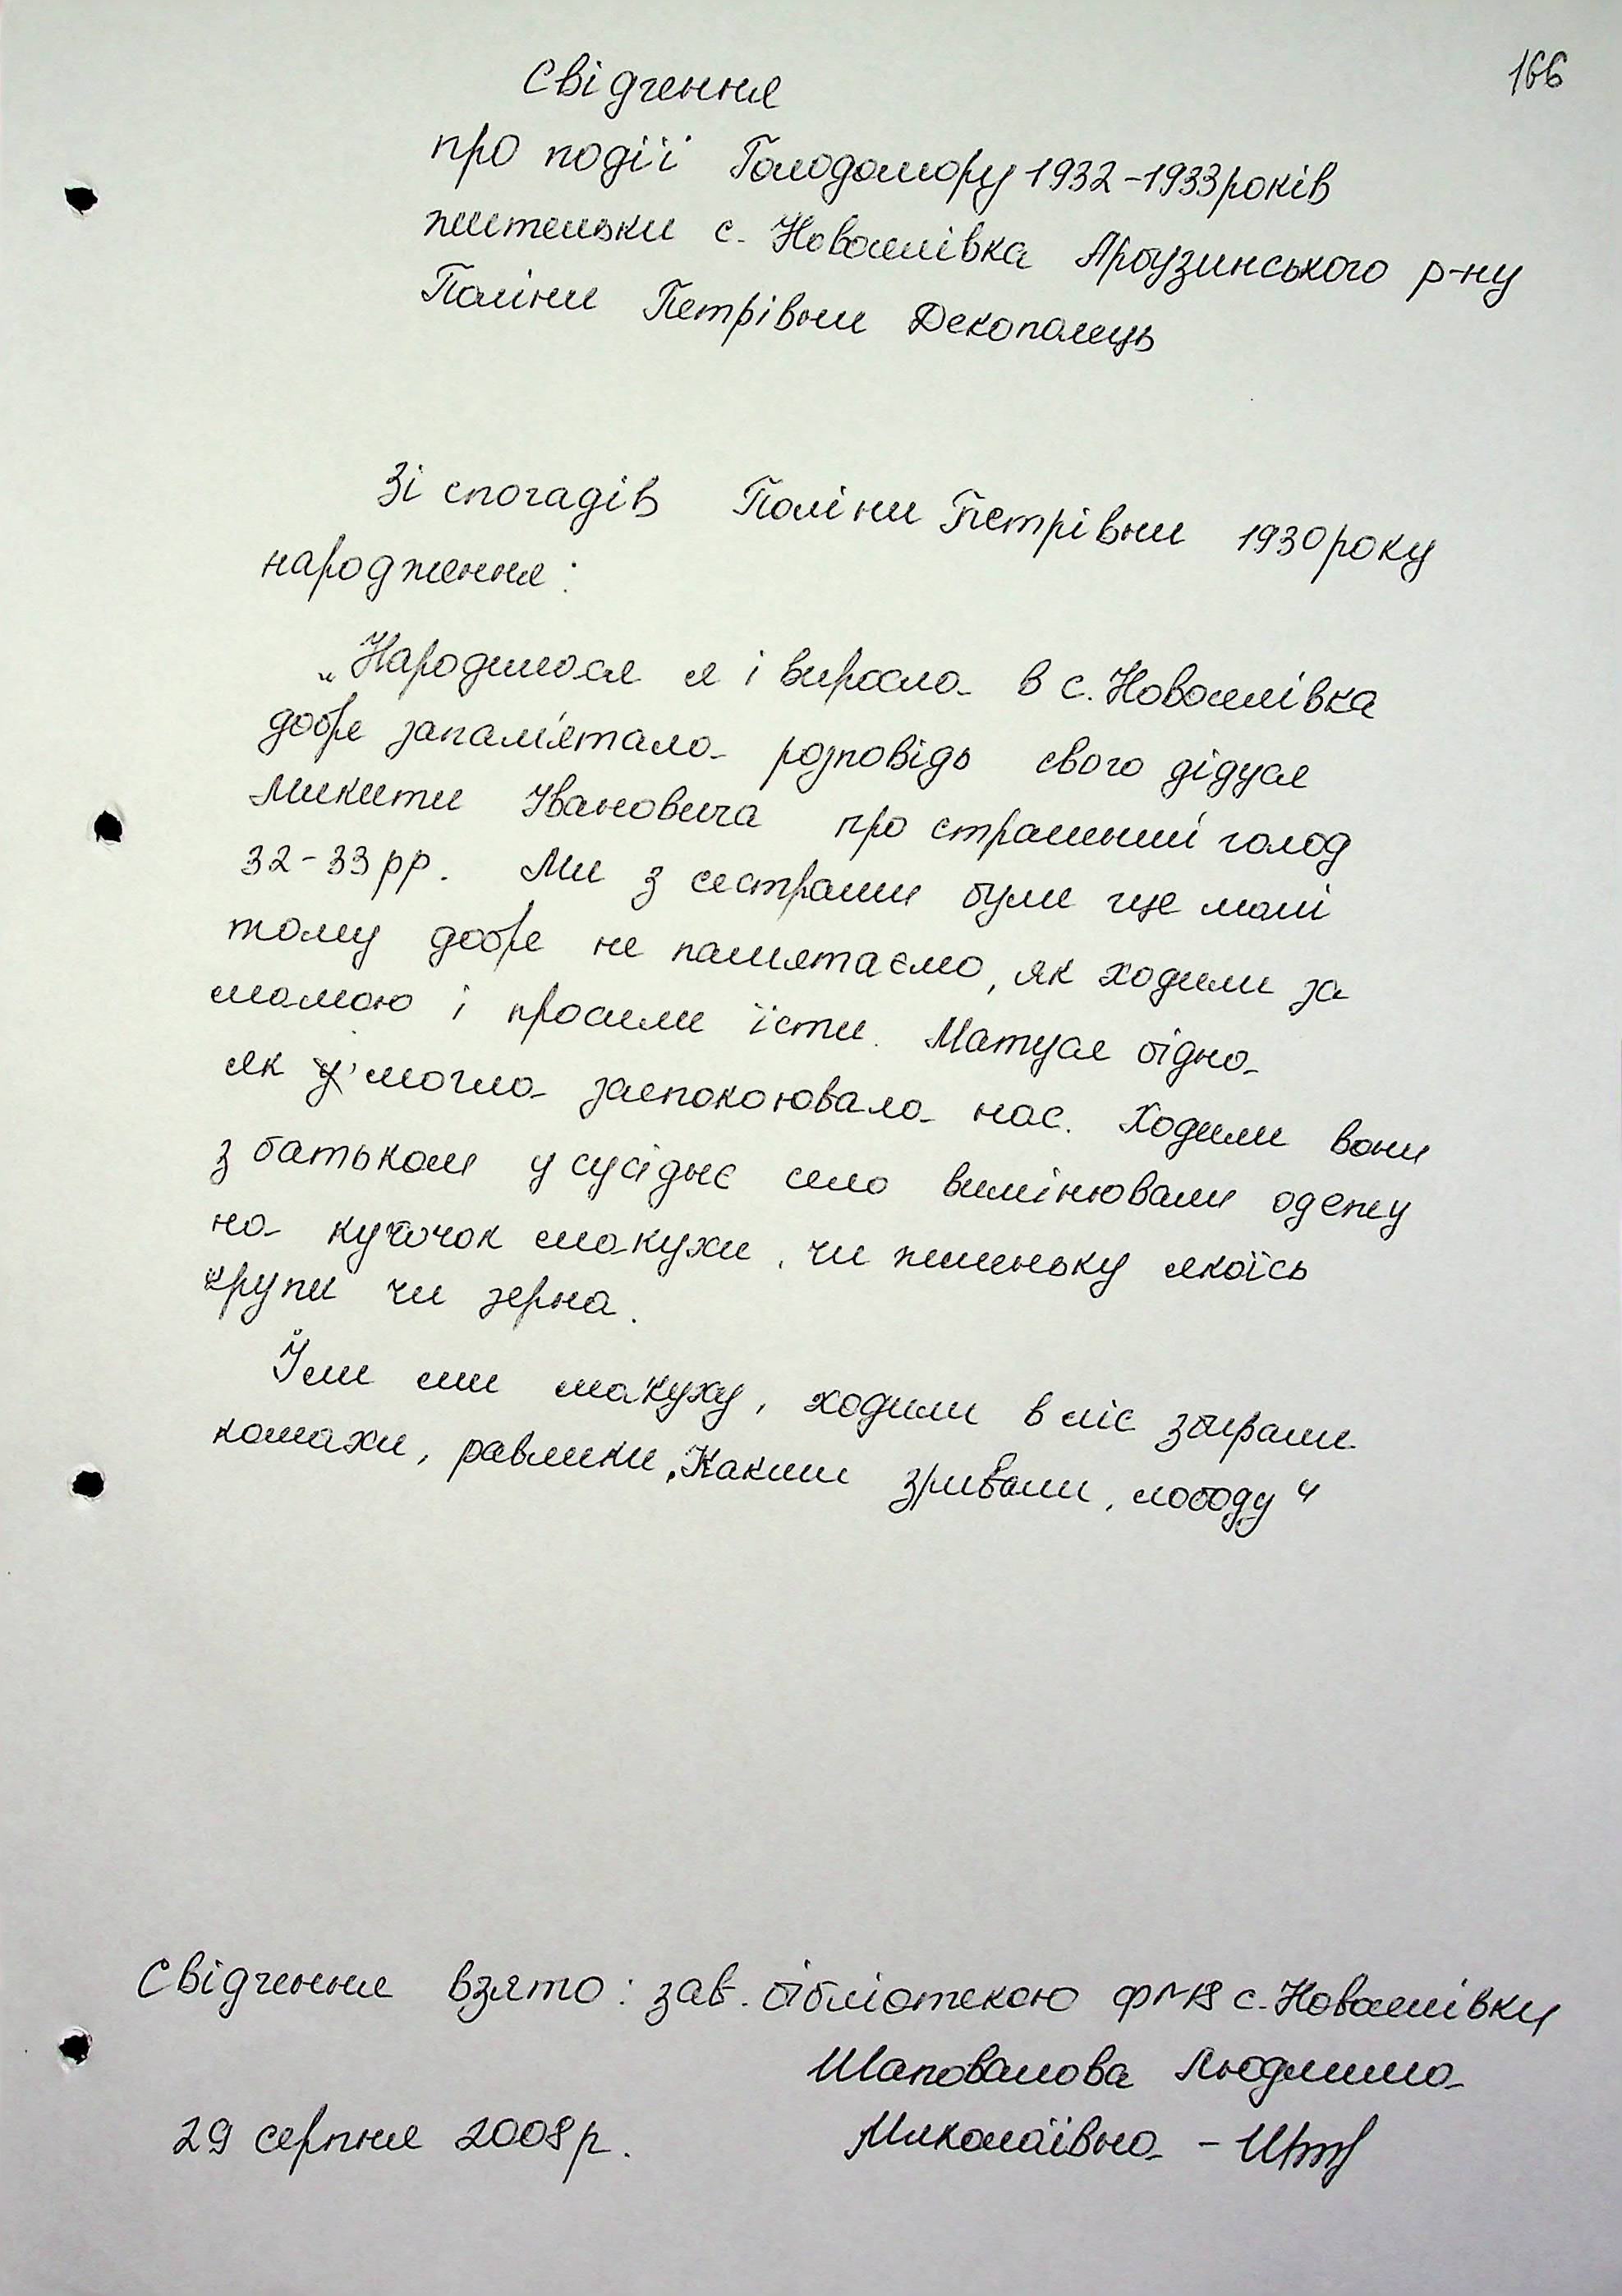 166
Свідчення
про події Голодомору 1932-1933 років
жительки с. Новоселівка Арбузинського р-ну
Поліни Петрівни Декополець
Зі спогадів Поліни Петрівни 1930 року
народження:
„Народилася я і виросла в с. Новоселівка
добре запам'ятала розповідь свого дідуся
Микити Івановича про страшний голод
32-33 рр. Ми з сестрами були ще малі
тому добре не памятаємо, як ходили за
мамою і просили їсти. Матуся бідна
як могла заспокоювала нас. Ходили вони
з батьком у сусіднє село вимінювали одежу
на кусочок макухи, чи жменьку якоїсь
крупи чи зерна.
Їли ми макуху, ходили в ліс збирали
комахи, равлики, Качим зривали, лободу"
Свідчення взято: зав. бібліотекою ф№18 с. Новоселівки
Шаповалова Людмила
29 серпня 2008 р. Миколаївна -